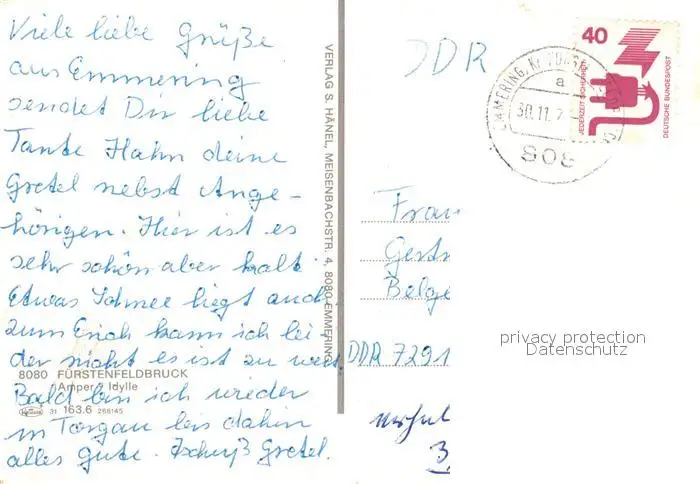 Viele liebe Grüße
aus Emmering
sendet Dir liebe
Tante Hahn deine
Gretel nebst Ange-
hörigen. Hier ist es
sehr schön aber kalt
Etwas Schnee liegt auch
zum Erich kann ich lei-
der nicht es ist zu weit.
8080 FÜRSTENFELDBRUCK
Amper - Idylle
Bald bin ich wieder
31 163.6 268145
in Torgau bis dahin
alles gute. Tschüß Gretel.
VERLAG S. HÄNEL, MEISENBACHSTR. 4, 8080 EMMERING
DDR
EMMERING, Kr
a
30.11.7
808
40
JEDERZEIT SICHERHEIT
DEUTSCHE BUNDESPOST
Frau
Gertr
Belge
DDR 7291
privacy protection
Datenschutz